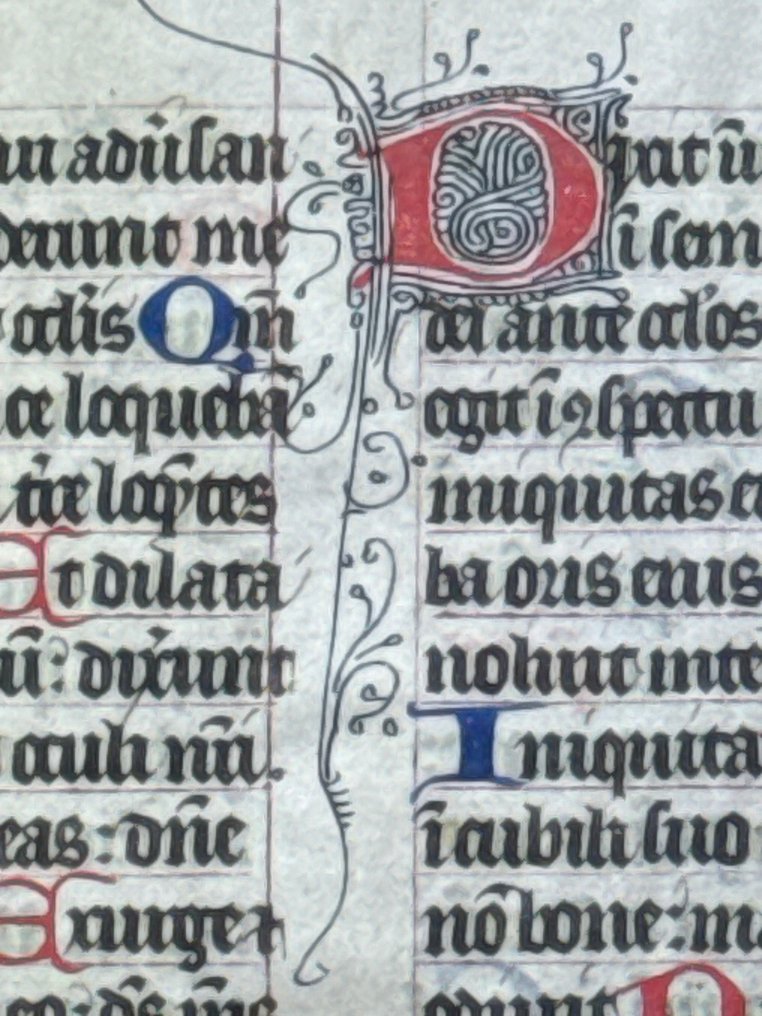 adusan
derunt me
oclis Qm̄
ce loquebā
tre loq̄tes
Et dilata
ū: dixunt
oculi nr̄i.
eas: dn̄e
Exurge et
ds̄ me
Dixit iū
ī sem
dei ante oclos
egit ī ꝯspectu
iniquitas ei
ba oris eius
noluit inte
Iniquita
ī cubili suo
nō bone: ma
odiuit D